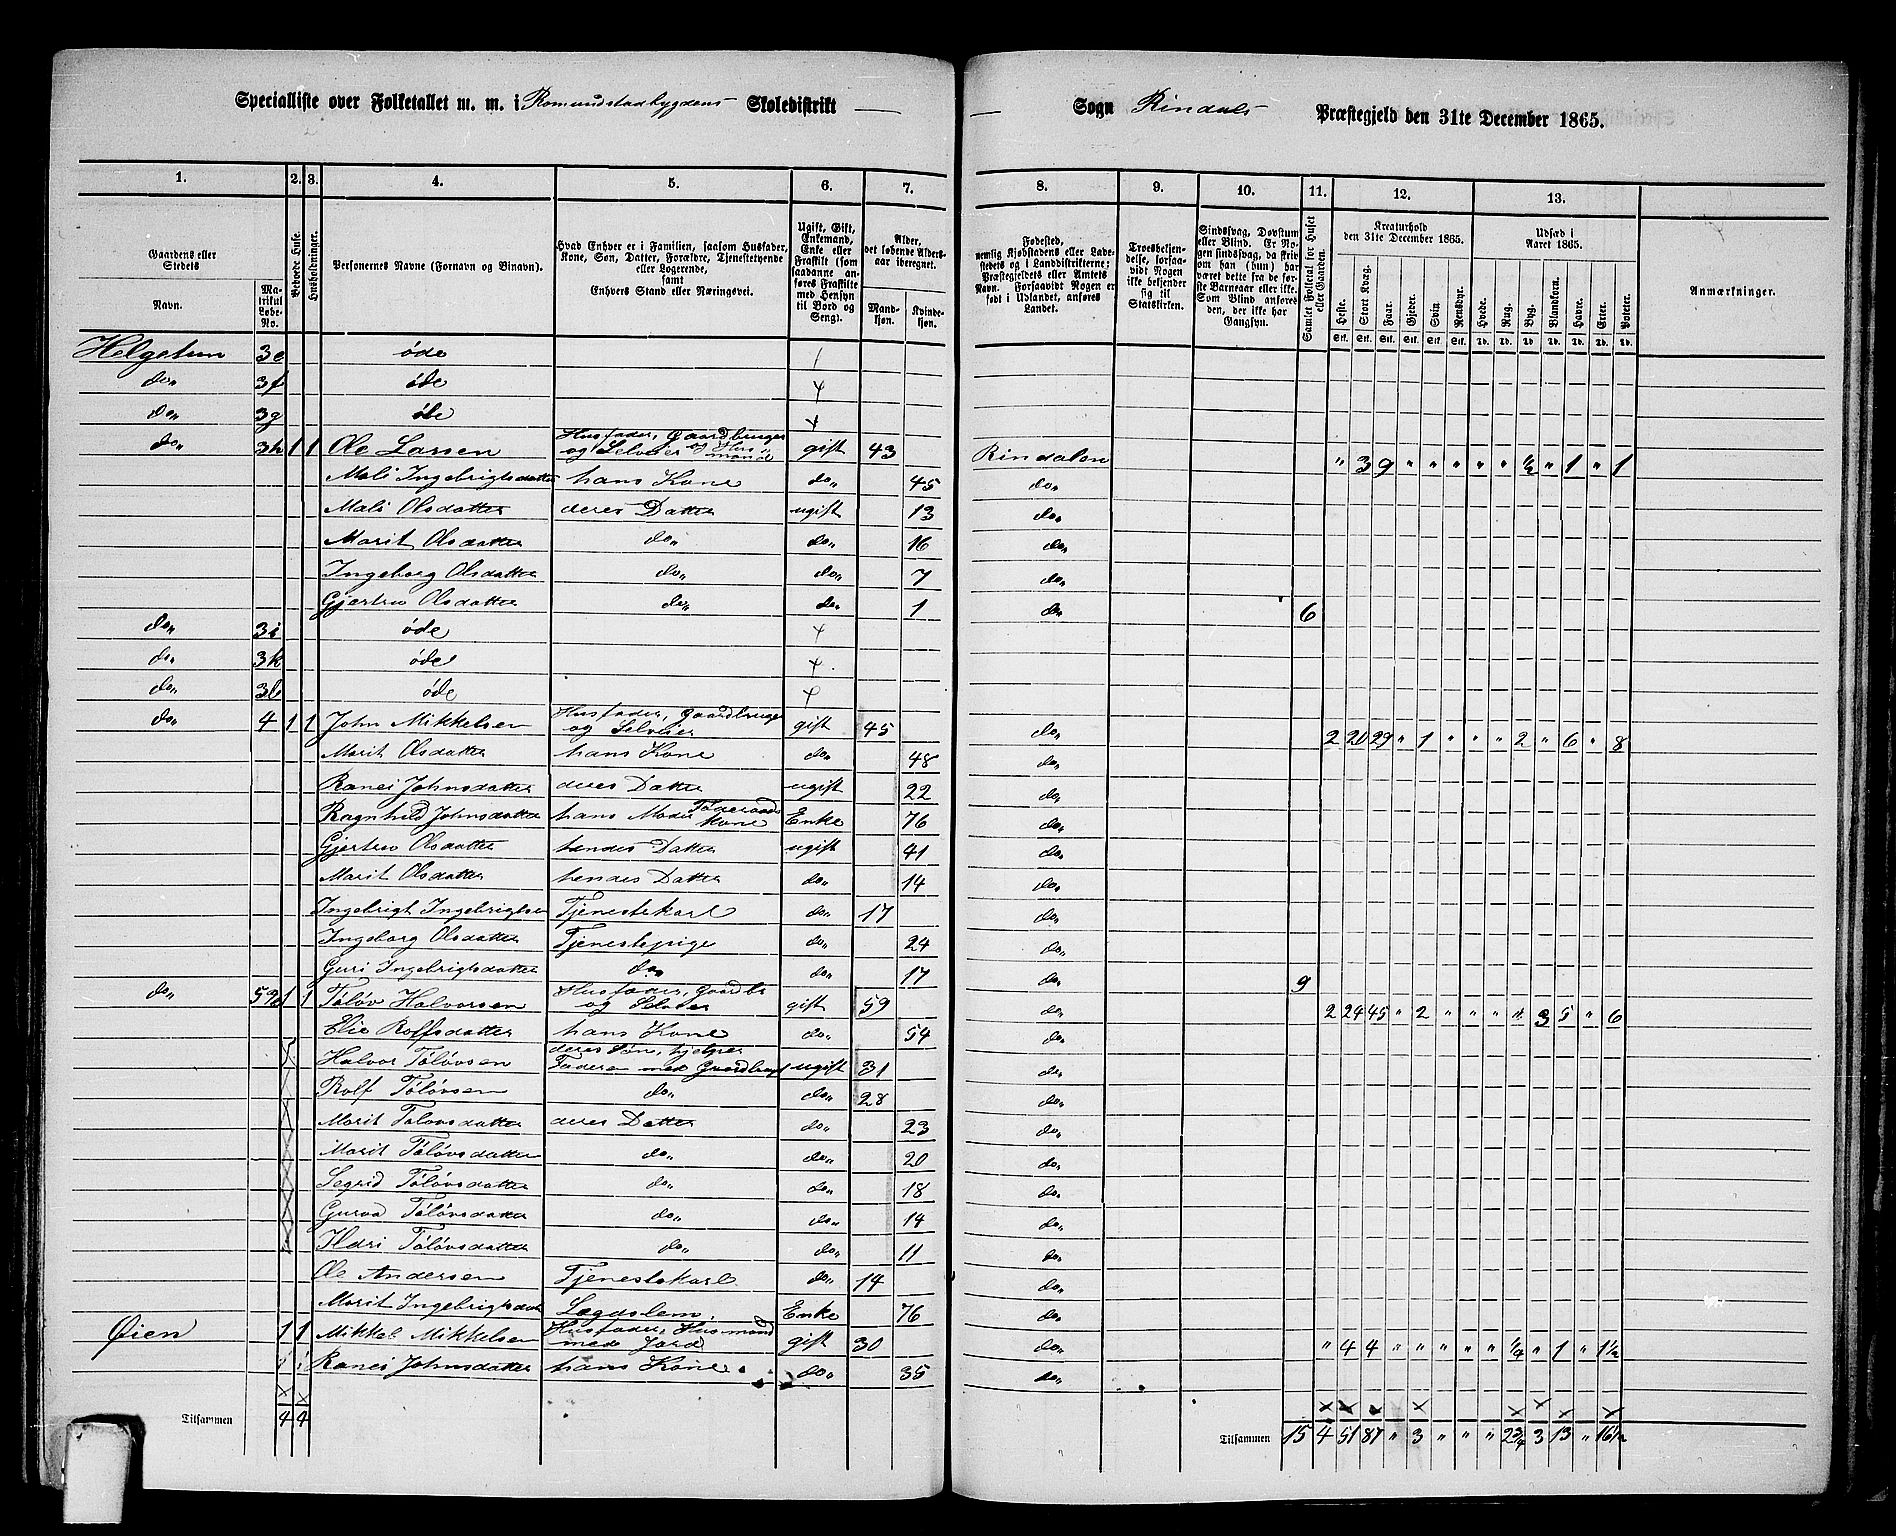 Specialliste over Folketallet m. m. i Romundstadbygdens Skoledistrikt
Sogn Rindals Præstegjeld den 31te December 1865.
1. 2. 3. 4. 5. 6. 7. 8. 9. 10. 11. 12. 13.
Gaardens eller Stedets
Navn.
Matrikul Løbe-No.
Beboede Huse.
Husholdninger.
Personernes Navne (Fornavn og Binavn).
Hvad Enhver er i Familien, saasom Husfader, Kone, Søn, Datter, Forældre, Tjenestetyende eller Logerende, samt Enhvers Stand eller Næringsvei.
Ugift, Gift, Enkemand, Enke eller Fraskilt (som saadanne anføres Fraskilte med Hensyn til Bord og Seng).
Alder, det løbende Alders-aar iberegnet.
Mandkjøn.
Kvindekjøn.
Fødested, nemlig Kjøbstadens eller Ladestedets og i Landdistrikterne; Præstegjeldets eller Amtets Navn. Forsaavidt Nogen er født i Udlandet, anføres Landet.
Troesbekjendelse, forsaavidt Nogen ikke bekjender sig til Statskirken.
Sindssvag, Døvstum eller Blind. Er Nogen sindssvag, da skrives om han (hun) har været dette fra de første Barneaar eller ikke. Som Blind anføres den, der ikke har Gangsyn.
Samlet Folketal for Huset eller Gaarden.
Kreaturhold den 31te December 1865.
Heste. Stort Kvæg. Faar. Gjeder. Svin. Rensdyr.
Udsæd i Aaret 1865.
Hvede. Rug. Byg. Blandkorn. Havre. Erter. Poteter.
Stk. Stk. Stk. Stk. Stk. Stk. Td. Td. Td. Td. Td. Td. Td.
Anmærkninger.
Helgetun 3e øde
do" 3f øde
do" 3g øde
do" 3h 1 1 Ole Larsen Husfader, Gaardbruger og Selveier og Husmand gift 43 Rindalen " 3 9 " " " " " ½ " 1 " 1
Mali Ingebrigtsdatter hans Kone do" 45 do"
Mali Olsdatter deres Datter ugift 13 do"
Marit Olsdatter do" do" 16 do"
Ingeborg Olsdatter do" do" 7 do"
Gjertru Olsdatter do" do" 1 do" 6
do" 3i øde
do" 3k øde
do" 3l øde
do" 4 1 1 John Mikkelsen Husfader, Gaardbruger og Selveier gift 45 do" 2 20 29 " 1 " " " 2 " 6 " 8
Marit Olsdatter hans Kone do" 48 do"
Ranei Johnsdatter deres Datter ugift 22 do"
Ragnhild Johnsdatter hans Moder Føderaads Kone Enke 76 do"
Gjertru Olsdatter hendes Datter ugift 41 do"
Marit Olsdatter hendes Datter do" 14 do"
Ingebrigt Ingebrigtsen Tjenestekarl do" 17 do"
Ingeborg Olsdatter Tjenestepige do" 24 do"
Guri Ingebrigtsdatter do" do" 17 do" 9
do" 1 1 Tøløv Halvorsen Husfader, Gaardbr og Selveier gift 59 do" 2 24 45 " 2 " " " " 3 5 " 6
Elie Rolfsdatter hans Kone do" 54 do"
Halvor Tøløvsen deres Søn, hjelper Faderen med Gaardbruget ugift 31 do"
Rolf Tøløvsen do" do" 28 do"
Marit Tøløvsdatter deres Datter do" 23 do"
Marit Tøløvsdatter do" do" 20 do"
Segrid Tøløvsdatter do" do" 18 do"
Gurva Tøløvsdatter do" do" 14 do"
Ildri Tøløvsdatter do" do" 11 do"
Ole Andersen Tjenestekarl do" 14 do"
Marit Ingebrigtsdat Lægdslem Enke 76 do"
Øien 1 1 Mikkel Mikkelsen Husfader, Husmand med Jord gift 30 do" " 4 4 " " " " " ¼ " 1 " 1½
Ranei Johnsdatter hans Kone do" 35 do"
Tilsammen 4 4
Tilsammen 15 4 51 87 " 3 " " " 2¾ 3 13 " 16½